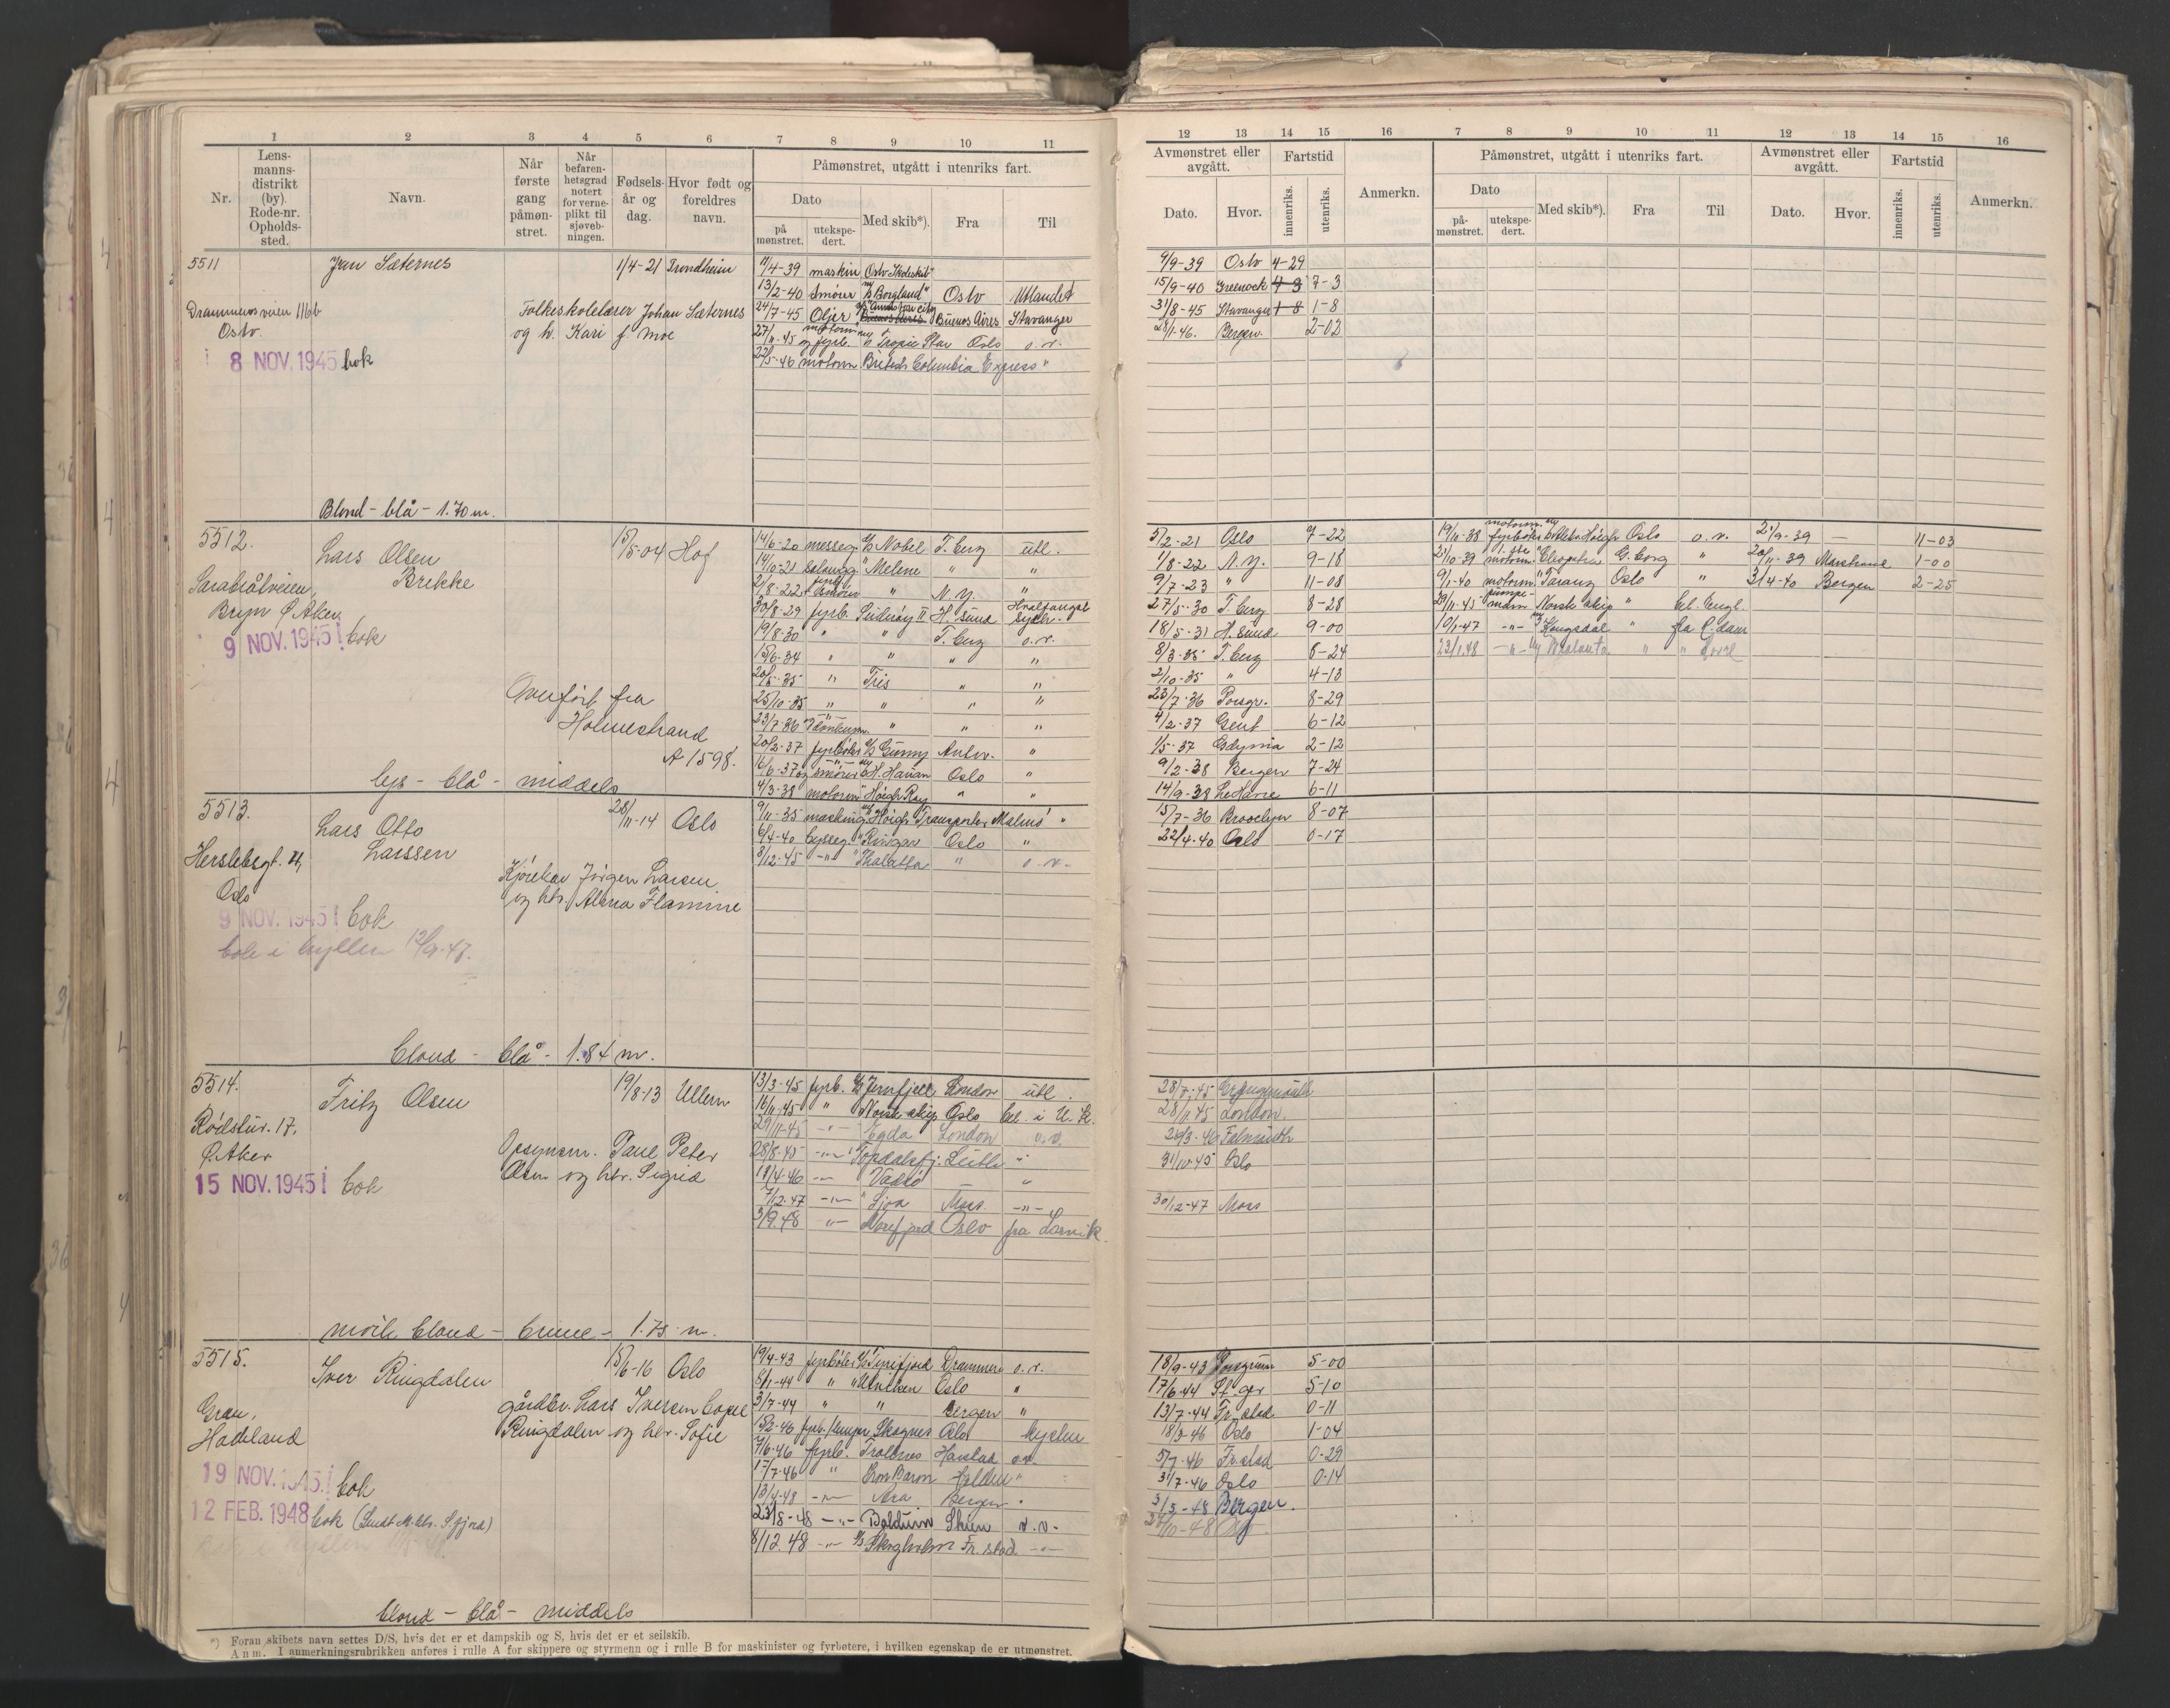 1 2 3 4 5 6 7 8 9 10 11
Nr.
Lensmannsdistrikt (by). Rode-nr. Opholdssted.
Navn.
Når første gang påmønstret.
Når befarenhetsgrad notert for verneplikt til sjøvebningen.
Fødselsår og dag.
Hvor født og foreldres navn.
Påmønstret, utgått i utenriks fart.
Dato
på mønstret.
utekspedert.
Med skib*).
Fra
Til
5511
Jan Sæternes 1/4-21 Trondheim
Drammensveien 116b
Oslo.
Folkeskolelærer Johan Sæternes
og h. Kari f. Moe
8 NOV. 1945 bok
11/4-39 maskin Oslo Skoleskib
13/2-40 Smører M/S Borgland" Oslo Utlandet
24/7-45 Oljer Buenos Aires Stavanger
27/11-45 og fyrb. Tropic Star Oslo o.v.
22/5-46 motorm British Columbia Express "
Blond - blå - 1.70 m.
5512.
Lars Olsen
Brekke
15/5-04 Hof
Bryn Ø. Aker
9 NOV. 1945 bok
Overført fra
Holmestrand
A 1598.
lys - blå - middels
14/6-20 messeg. D/S Nobel T.berg utl.
14/10-21 " Melene " "
2/8-22 " N.Y. "
30/8-29 fyrb. Suderøy II H.sund
19/8-30 " " T.berg o.v.
15/6-34 " " " "
20/5-35 " Tris " "
25/10-35 " " " "
23/7-36 " " "
20/2-37 fyrbøter D/S Gunny Antw. "
16/6-37 og smører Oslo "
4/3-38 motorm " Høegh Ray " "
5513.
Lars Otto
Larssen
28/11-14 Oslo
Herslebsgt.
Oslo
Kjørekar Jørgen Larsen
og hr. Albna Flamme
9 NOV. 1945 bok
bok i hyllen 12/9-47.
9/11-35 Høegh Transporter Malmö "
6/4-40 " Ringar Oslo "
8/12-45 -"- " Thalatta " o.v.
blond - blå - 1.84 m.
5514.
Fritz Olsen 19/8-13 Ullern
17.
Ø. Aker
Opsynsm. Paul Peter
Olsen og hr. Sigrid
15 NOV. 1945 bok
13/3-45 fyrb. D/S Jernfjell London utl.
16/11-45 " Norsk skip Oslo bel. i U.K.
29/11-45 -"- Egda London o.v.
28/8-45 -"- Topdalsfj. Leith "
18/4-46 -"- Vadsø "
7/12-47 -"- " Sjoa Moss -"-
3/9.48 "- Norefjord Oslo fra Larvik.
mörk blond - brune - 1.75 m.
5515.
Iver Ringdalen 15/6-16 Oslo
Gran,
Hadeland
gårdbr. Lars Iversen
Ringdalen og hr. Sofie
19 NOV. 1945 bok
12 FEB. 1948 bok (Sendt M. ktr. Sfjord)
19/4-43 fyrbøter D/S Tyrifjord Drammen o.v.
8/1-44 " " Utviken Oslo "
3/7-44 " " Bergen "
15/2-46 Skagnes Oslo kysten
7/6-46 fyrb. Troldnes Harstad o.v.
17/7-46 " Iron Baron Halden "
13/4-48 -"- Ara Bergen "
23/8-48 -"- Balduin Skien o.v.
8/12.48 -"- D/S Skogholm Fr.stad. -"-
blond - blå - middels
*) Foran skibets navn settes D/S, hvis det er et dampskib og S, hvis det er et seilskib.
Anm. I anmerkningsrubrikken anføres i rulle A for skippere og styrmenn og i rulle B for maskinister og fyrbøtere, i hvilken egenskap de er utmønstret.
12 13 14 15 16 7 8 9 10 11 12 13 14 15 16
Avmønstret eller avgått.
Fartstid
Anmerkn.
Påmønstret, utgått i utenriks fart.
Avmønstret eller avgått.
Fartstid
Anmerkn.
Dato.
Hvor.
innenriks.
utenriks.
Dato
påmønstret.
utekspedert.
Med skib*).
Fra
Til
Dato.
Hvor.
innenriks.
utenriks.
9/9-39 Oslo 4-29
15/9-40 Greenock 7-3
31/8-45 Stavanger 1-8
28/1-46. Bergen. 2-02
5/2-21 Oslo 7-22
1/8-22 N.Y. 9-18
9/7-23 " 11-08
27/5-30 T.berg 8-28
18/5-31 H.sund 9-00
8/3-35 T.berg 8-24
2/10-35 " 4-13
23/7-36 Porsgr. 8-29
4/2-37 Gent 6-12
1/5-37 Gdynia 2-12
9/2-38 Bergen 7-24
14/9-38 Le Havre 6-11
19/11-38 Oslo o.v. 21/9-39 — 11-03
21/10-39 motorm. "Cleopatra G.borg " 20/11-39 Marstrand 1-00
9/1-40 motorm. "Taranger Oslo " 3/4-40 Bergen 2-25
29/11-45 Norsk skip " bel. Engl.
10/1-47 -"- Kongsdal " fra R.dam
23/1.48 -"-
15/7-36 Brooklyn 8-07
22/4-40 Oslo 0-17
28/7-45
28/11 45 London.
26/3-46 Falmouth
31/10-45 Oslo
30/12-47 Moss
18/9-43 Porsgrunn 5-00
17/6-44 St.ger 5-10
13/7-44 Fr.stad 0-11
18/3-46 Oslo 1-04
5/7-46 Fr.stad 0-29
31/7-46 Oslo 0-14
3/5-48 Bergen.